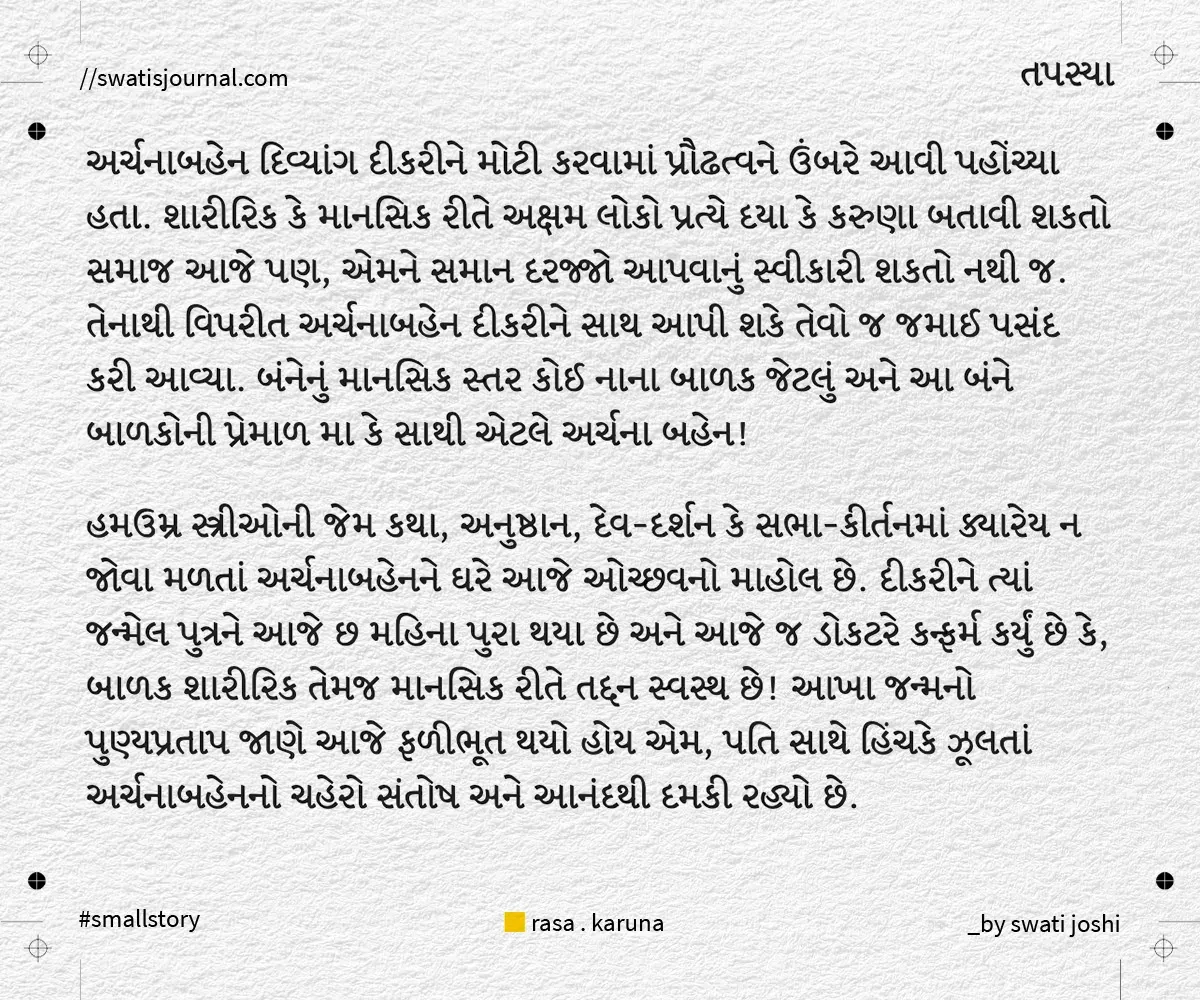 //swatisjournal.com
તપસ્યા
અર્ચનાબહેન દિવ્યાંગ દીકરીને મોટી કરવામાં પ્રૌઢત્વને ઉંબરે આવી પહોંચ્યા
હતા. શારીરિક કે માનસિક રીતે અક્ષમ લોકો પ્રત્યે દયા કે કરુણા બતાવી શકતો
સમાજ આજે પણ, એમને સમાન દરજ્જો આપવાનું સ્વીકારી શકતો નથી જ.
તેનાથી વિપરીત અર્ચનાબહેન દીકરીને સાથ આપી શકે તેવો જ જમાઈ પસંદ
કરી આવ્યા. બંનેનું માનસિક સ્તર કોઈ નાના બાળક જેટલું અને આ બંને
બાળકોની પ્રેમાળ મા કે સાથી એટલે અર્ચના બહેન!
હમઉમ્ર સ્ત્રીઓની જેમ કથા, અનુષ્ઠાન, દેવ-દર્શન કે સભા-કીર્તનમાં ક્યારેય ન
જોવા મળતાં અર્ચનાબહેનને ઘરે આજે ઓચ્છવનો માહોલ છે. દીકરીને ત્યાં
જન્મેલ પુત્રને આજે છ મહિના પુરા થયા છે અને આજે જ ડોકટરે કન્ફર્મ કર્યું છે કે,
બાળક શારીરિક તેમજ માનસિક રીતે તદ્દન સ્વસ્થ છે! આખા જન્મનો
પુણ્યપ્રતાપ જાણે આજે ફળીભૂત થયો હોય એમ, પતિ સાથે હિંચકે ઝૂલતાં
અર્ચનાબહેનનો ચહેરો સંતોષ અને આનંદથી દમકી રહ્યો છે.
#smallstory
rasa . karuna
_by swati joshi